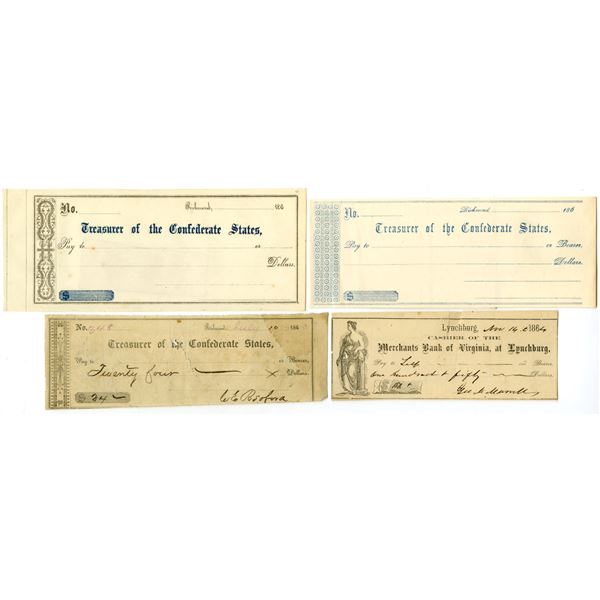 No. Richmond, 186
Treasurer of the Confederate States,
Pay to or
Dollars.
$
No. Richmond, 186
Treasurer of the Confederate States,
Pay to or Bearer,
Dollars.
$
No. Richmond, July 10 186
Treasurer of the Confederate States,
Pay to or Bearer,
Twenty four x Dollars.
$ 24
Lynchburg, Nov 14 1864
CASHIER OF THE
Merchants Bank of Virginia, at Lynchburg,
Pay to Self or Bearer
One hundred & fifty Dollars.
$